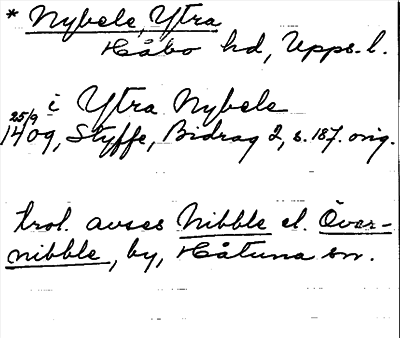 * Nybele, Ytra
Håbo hd, Upps. l.
i Ytra Nybele
25/9
1409, Styffe, Bidrag 2, s. 187. orig.
trol. avses Nibble el. Över-
nibble, by, Håtuna sn.